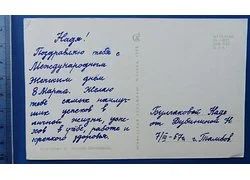 Надя!
Поздравляю тебя с
Международным
Женским днём
8 Марта. Желаю
тебе самых наилуч-
ших успехов в
личной жизни, успе-
хов в учёбе, работе и
крепкого здоровья.
Булгаковой Наде
от Дубининой Н
7/III-67г г. Тамбов